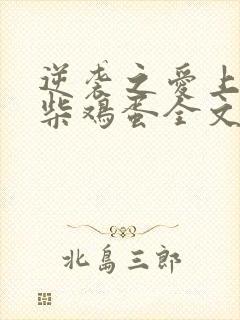 逆袭之爱上
柴鸡蛋全文
北島三郎